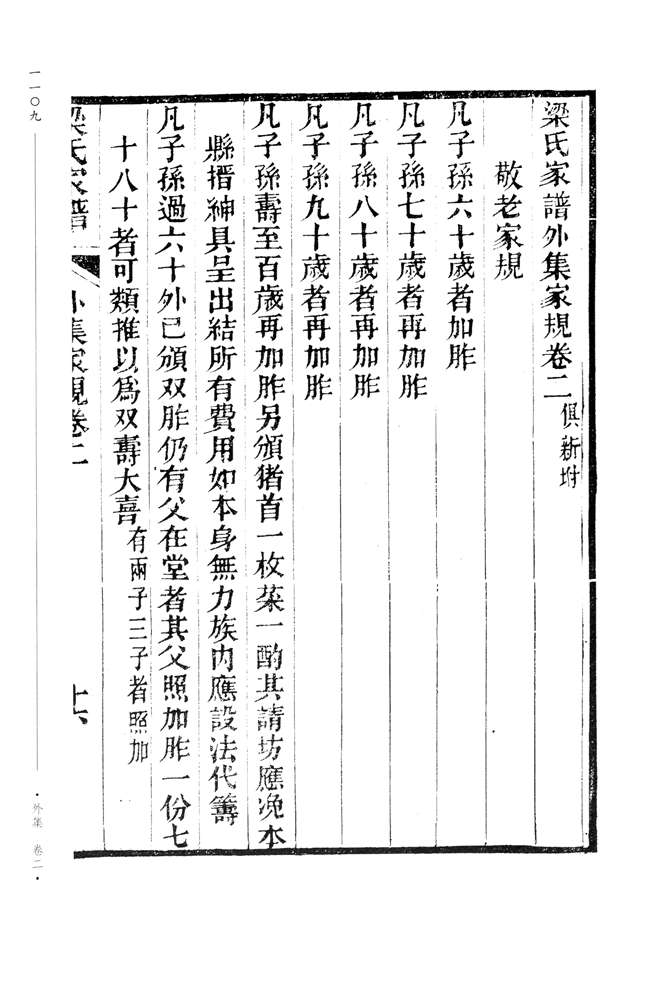 梁氏家譜外集家規卷二 俱新坿
敬老家規
凡子孫六十歲者加胙
凡子孫七十歲者再加胙
凡子孫八十歲者再加胙
凡子孫九十歲者再加胙
凡子孫壽至百歲再加胙另頒猪首一枚菜一酌其請坊應凂本
縣搢紳具呈出結所有費用如本身無力族內應設法代籌
凡子孫過六十外已頒双胙仍有父在堂者其父照加胙一份七
十八十者可類推以爲双壽大喜 有兩子三子者照加
梁氏家譜 外集家規卷二 十六
一一〇九
·外集 卷二·